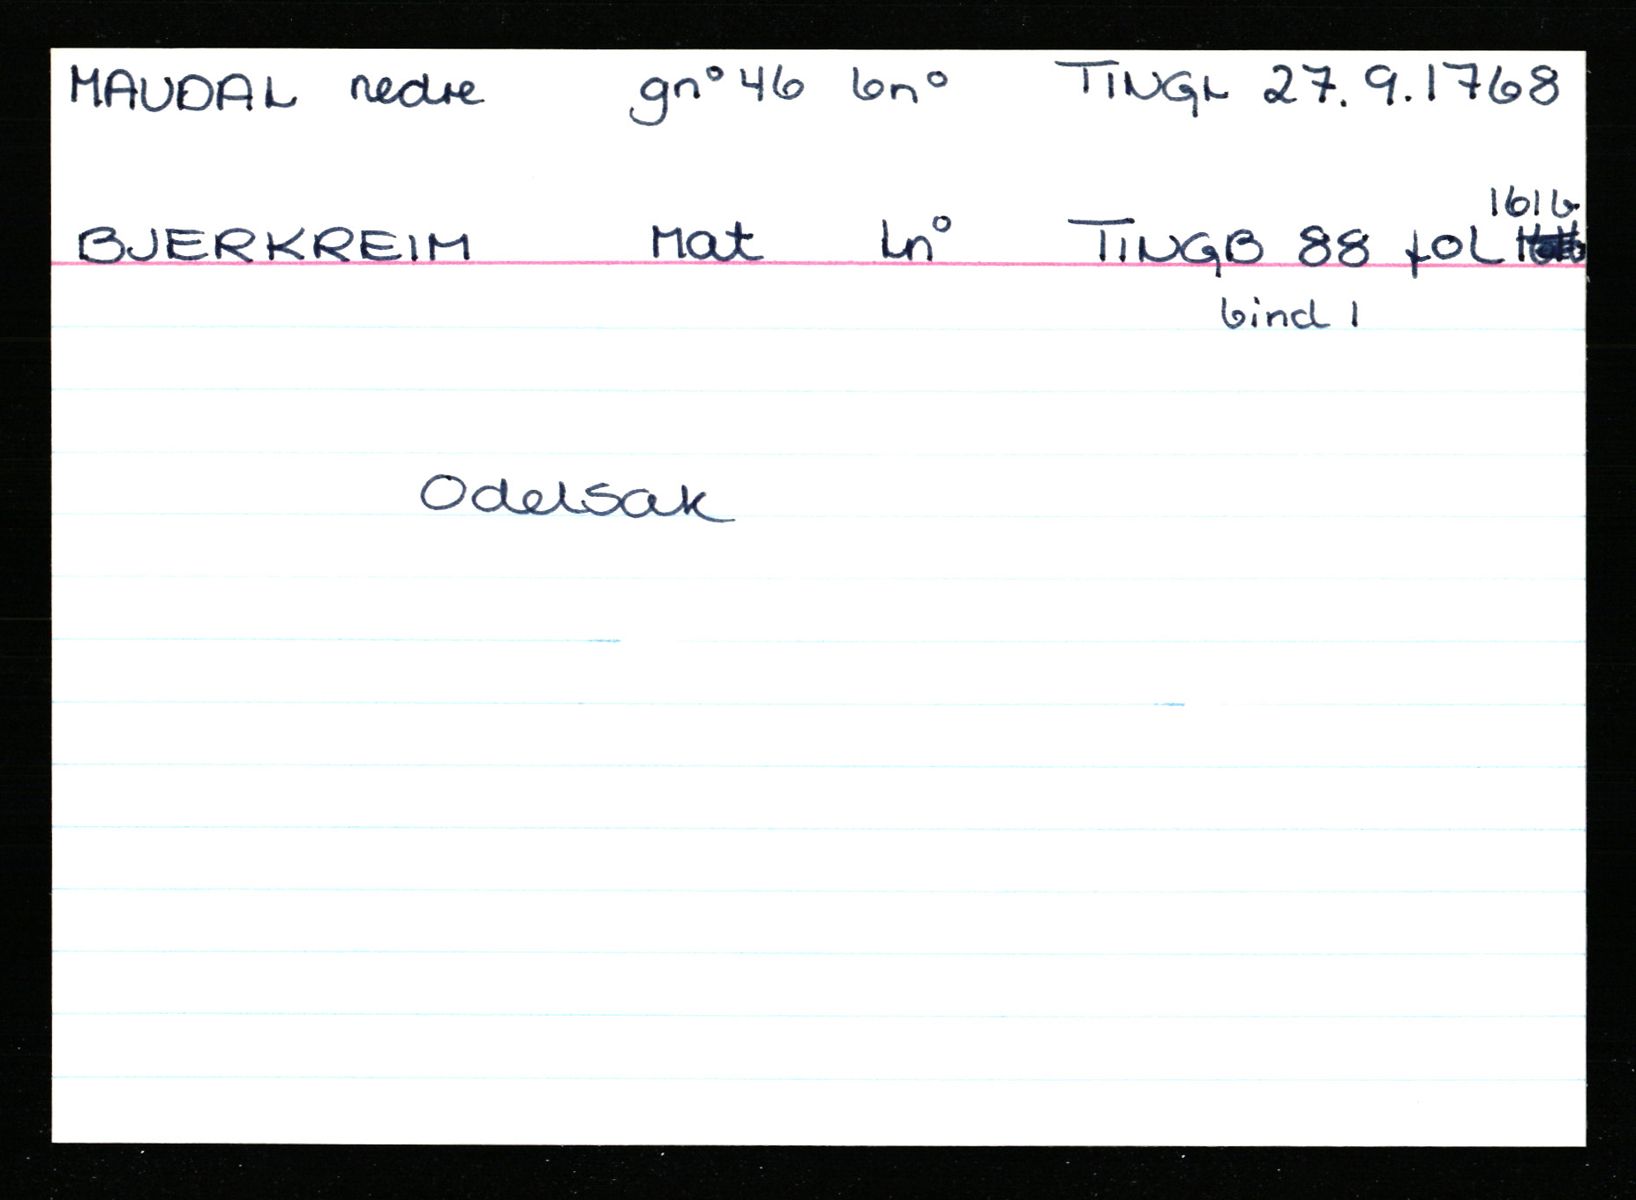 MAUDAL nedre gn° 46 bn° TINGL 27.9.1768
161b
BJERKREIM Mat Ln° TINGB 88 fol
bind 1
Odelsak